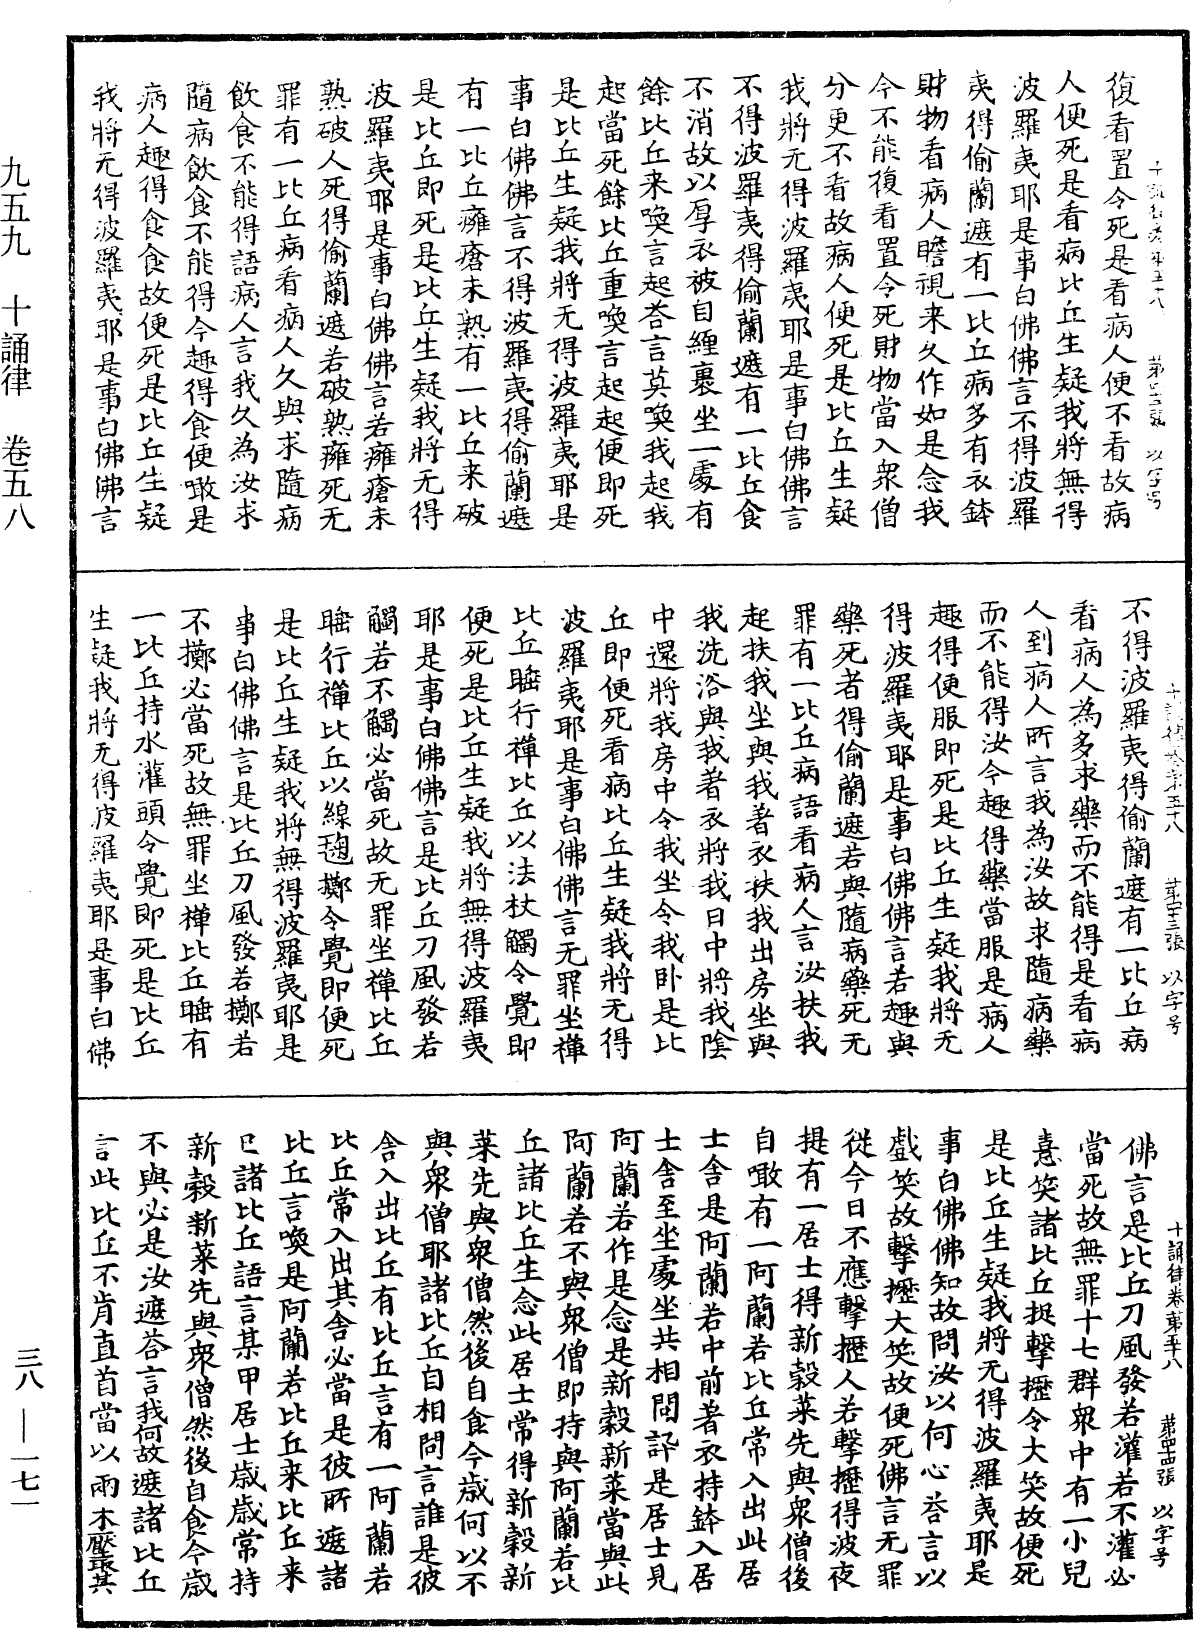 復看置令死是看病人便不看故病
人便死是看病比丘生疑我將無得
波羅夷耶是事白佛佛言不得波羅
夷得偷蘭遮有一比丘病多有衣鉢
財物看病人瞻視来久作如是念我
今不能復看置令死財物當入衆僧
分更不看故病人便死是比丘生疑
我將无得波羅夷耶是事白佛佛言
不得波羅夷得偷蘭遮有一比丘食
不消故以厚衣被自纏裹坐一處有
餘比丘来喚言起荅言莫喚我起我
起當死餘比丘重喚言起起便即死
是比丘生疑我將无得波羅夷耶是
事白佛佛言不得波羅夷得偷蘭遮
有一比丘癰瘡未熟有一比丘来破
是比丘即死是比丘生疑我將无得
波羅夷耶是事白佛佛言若癰瘡未
熟破人死得偷蘭遮若破熟癰死无
罪有一比丘病看病人久與求隨病
飲食不能得語病人言我久為汝求
隨病飲食不能得今趣得食便噉是
病人趣得食食故便死是比丘生疑
我將无得波羅夷耶是事白佛佛言
不得波羅夷得偷蘭遮有一比丘病
看病人為多求藥而不能得是看病
人到病人所言我為汝故求隨病藥
而不能得汝今趣得藥當服是病人
趣得便服即死是比丘生疑我將无
得波羅夷耶是事白佛佛言若趣與
藥死者得偷蘭遮若與隨病藥死无
罪有一比丘病語看病人言汝扶我
起扶我坐與我著衣扶我出房坐與
我洗浴與我著衣將我日中將我陰
中還將我房中令我坐令我卧是比
丘即便死看病比丘生疑我將无得
波羅夷耶是事白佛佛言无罪坐禪
比丘睡行禪比丘以法杖觸令覺即
便死是比丘生疑我將無得波羅夷
耶是事白佛佛言是比丘刀風發若
觸若不觸必當死故无罪坐禪比丘
睡行禪比丘以線毱擲令覺即便死
是比丘生疑我將無得波羅夷耶是
事白佛佛言是比丘刀風發若擲若
不擲必當死故無罪坐禪比丘睡有
一比丘持水灌頭令覺即死是比丘
生疑我將无得波羅夷耶是事白佛
十誦律卷第五十八 第四四張 以字号
佛言是比丘刀風發若灌若不灌必
當死故無罪十七群衆中有一小兒
憙笑諸比丘捉擊攊令大笑故便死
是比丘生疑我將无得波羅夷耶是
事白佛佛知故問汝以何心荅言以
戲笑故擊攊大笑故便死佛言无罪
從今日不應擊攊人若擊攊得波夜
提有一居士得新穀菜先與衆僧後
自噉有一阿蘭若比丘常入出此居
士舍是阿蘭若中前著衣持鉢入居
士舍至坐處坐共相問訊是居士見
阿蘭若作是念是新穀新菜當與此
阿蘭若不與衆僧即持與阿蘭若比
丘諸比丘生念此居士常得新穀新
菜先與衆僧然後自食今歳何以不
與衆僧耶諸比丘自相問言誰是彼
舍入出比丘有比丘言有一阿蘭若
比丘常入出其舍必當是彼所遮諸
比丘言喚是阿蘭若比丘来比丘来
已諸比丘語言某甲居士歳歳常持
新穀新菜先與衆僧然後自食今歳
不與必是汝遮荅言我何故遮諸比丘
言此比丘不肯直首當以兩木壓㝡其
九五九 十誦律 卷五八
三八 — 一七一